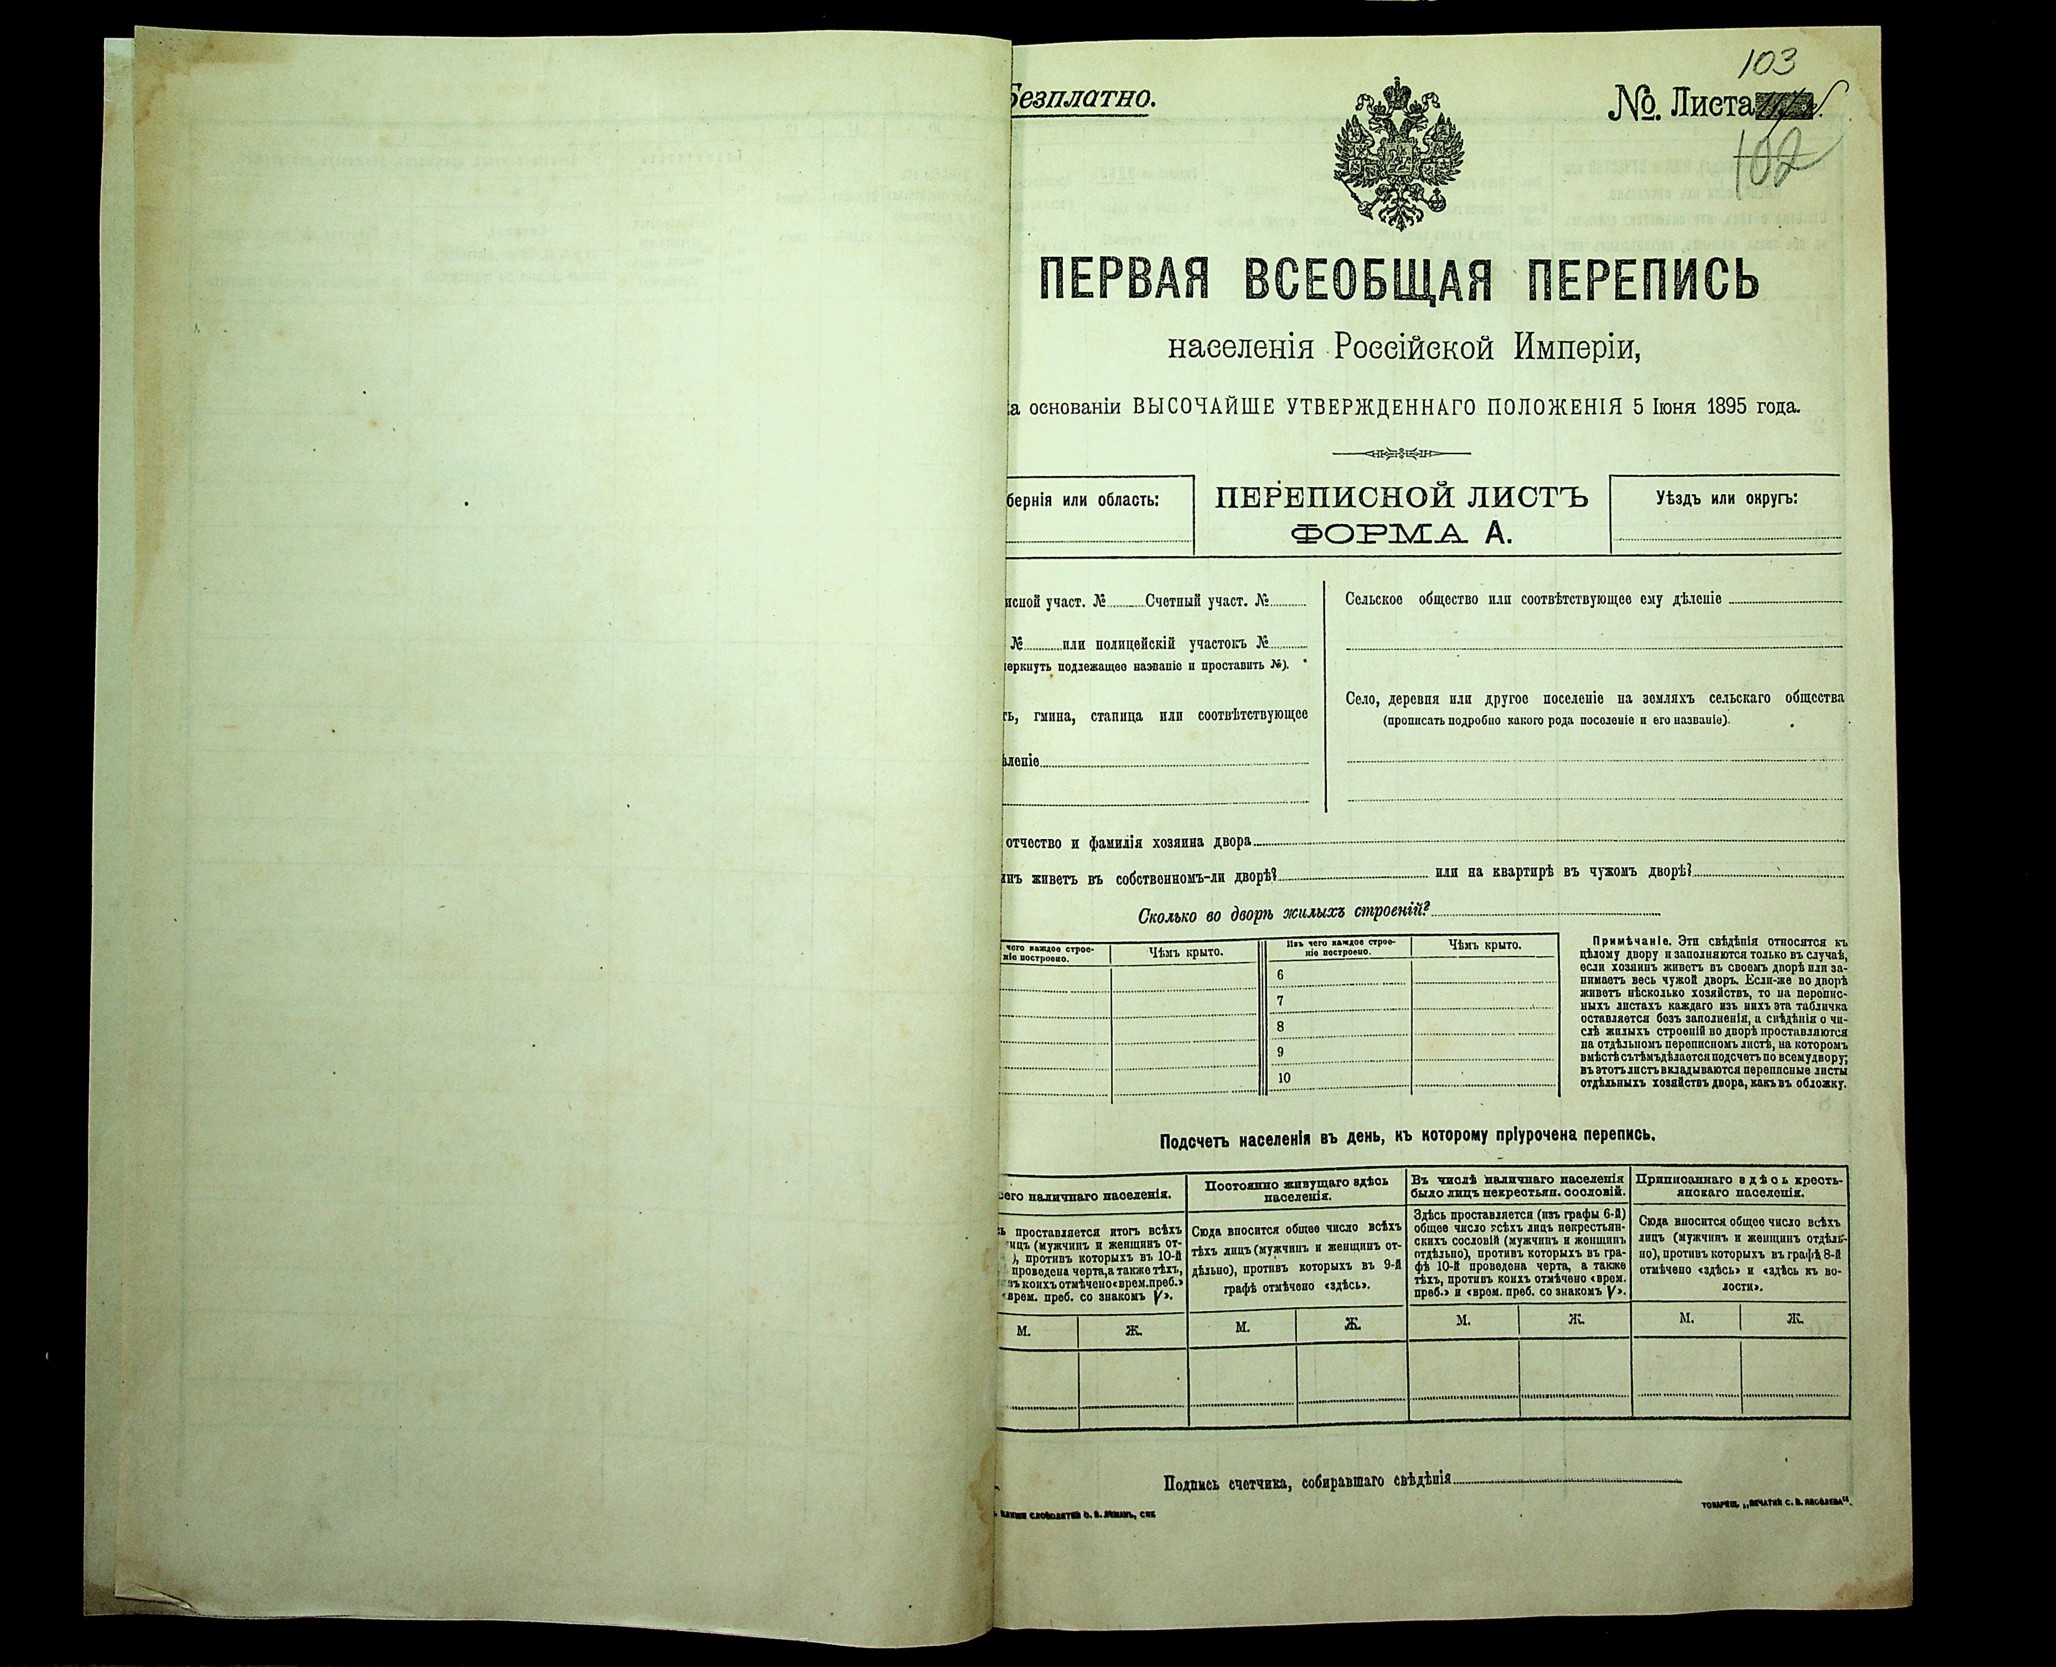 103
Безплатно.
№. Листа
102
ПЕРВАЯ ВСЕОБЩАЯ ПЕРЕПИСЬ
населенія Россійской Имперіи,
основаніи ВЫСОЧАЙШЕ УТВЕРЖДЕННАГО ПОЛОЖЕНІЯ 5 Іюня 1895 года.
бернія или область:
ПЕРЕПИСНОЙ ЛИСТЪ
ФОРМА А.
Уѣздъ или округъ:
исной участ. № Счетный участ. №
№ или полицейскій участокъ №
еркнуть подлежащее названіе и проставить №).
ь, гмина, станица или соотвѣтствующее
леніе
Сельское общество или соотвѣтствующее ему дѣленіе
Село, деревня или другое поселеніе на земляхъ сельскаго общества
(прописать подробно какого рода поселеніе и его названіе).
отчество и фамилія хозяина двора
инъ живетъ въ собственномъ-ли дворѣ? или на квартирѣ въ чужомъ дворѣ?
Сколько во дворѣ жилыхъ строеній?
чего каждое строе-
ніе построено.
Чѣмъ крыто.
Изъ чего каждое строе-
ніе построено.
Чѣмъ крыто.
6
7
8
9
10
Примѣчаніе. Эти свѣдѣнія относятся къ
цѣлому двору и заполняются только въ случаѣ,
если хозяинъ живетъ въ своемъ дворѣ или за-
нимаетъ весь чужой дворъ. Если-же во дворѣ
живетъ нѣсколько хозяйствъ, то на перепис-
ныхъ листахъ каждаго изъ нихъ эта табличка
оставляется безъ заполненія, а свѣдѣнія о чи-
слѣ жилыхъ строеній во дворѣ проставляются
на отдѣльномъ переписномъ листѣ, на которомъ
вмѣстѣ съ тѣмъ дѣлается подсчетъ по всему двору;
въ этотъ листъ вкладываются переписные листы
отдѣльныхъ хозяйствъ двора, какъ въ обложку.
Подсчетъ населенія въ день, къ которому пріурочена перепись.
его наличнаго населенія.
ь проставляется итогъ всѣхъ
ицъ (мужчинъ и женщинъ от-
), противъ которыхъ въ 10-й
проведена черта, а также тѣхъ,
въ коихъ отмѣчено «врем. преб.»
«врем. преб. со знакомъ V».
Постоянно живущаго здѣсь
населенія.
Сюда вносится общее число всѣхъ
тѣхъ лицъ (мужчинъ и женщинъ от-
дѣльно), противъ которыхъ въ 9-й
графѣ отмѣчено «здѣсь».
Въ числѣ наличнаго населенія
было лицъ некрестьян. сословій.
Здѣсь проставляется (изъ графы 6-й)
общее число всѣхъ лицъ некрестьян-
скихъ сословій (мужчинъ и женщинъ
отдѣльно), противъ которыхъ въ гра-
фѣ 10-й проведена черта, а также
тѣхъ, противъ коихъ отмѣчено «врем.
преб.» и «врем. преб. со знакомъ V».
Приписаннаго здѣсь кресть-
янскаго населенія.
Сюда вносится общее число всѣхъ
лицъ (мужчинъ и женщинъ отдѣль-
но), противъ которыхъ въ графѣ 8-й
отмѣчено «здѣсь» и «здѣсь къ во-
лости».
М. Ж. М. Ж. М. Ж. М. Ж.
Подпись счетчика, собиравшаго свѣдѣнія
СЛОВОЛИТНИ О. И. ЛЕМАНЪ, СПБ
ТОВАРИЩ. „ПЕЧАТНИ С. П. ЯКОВЛЕВА“.